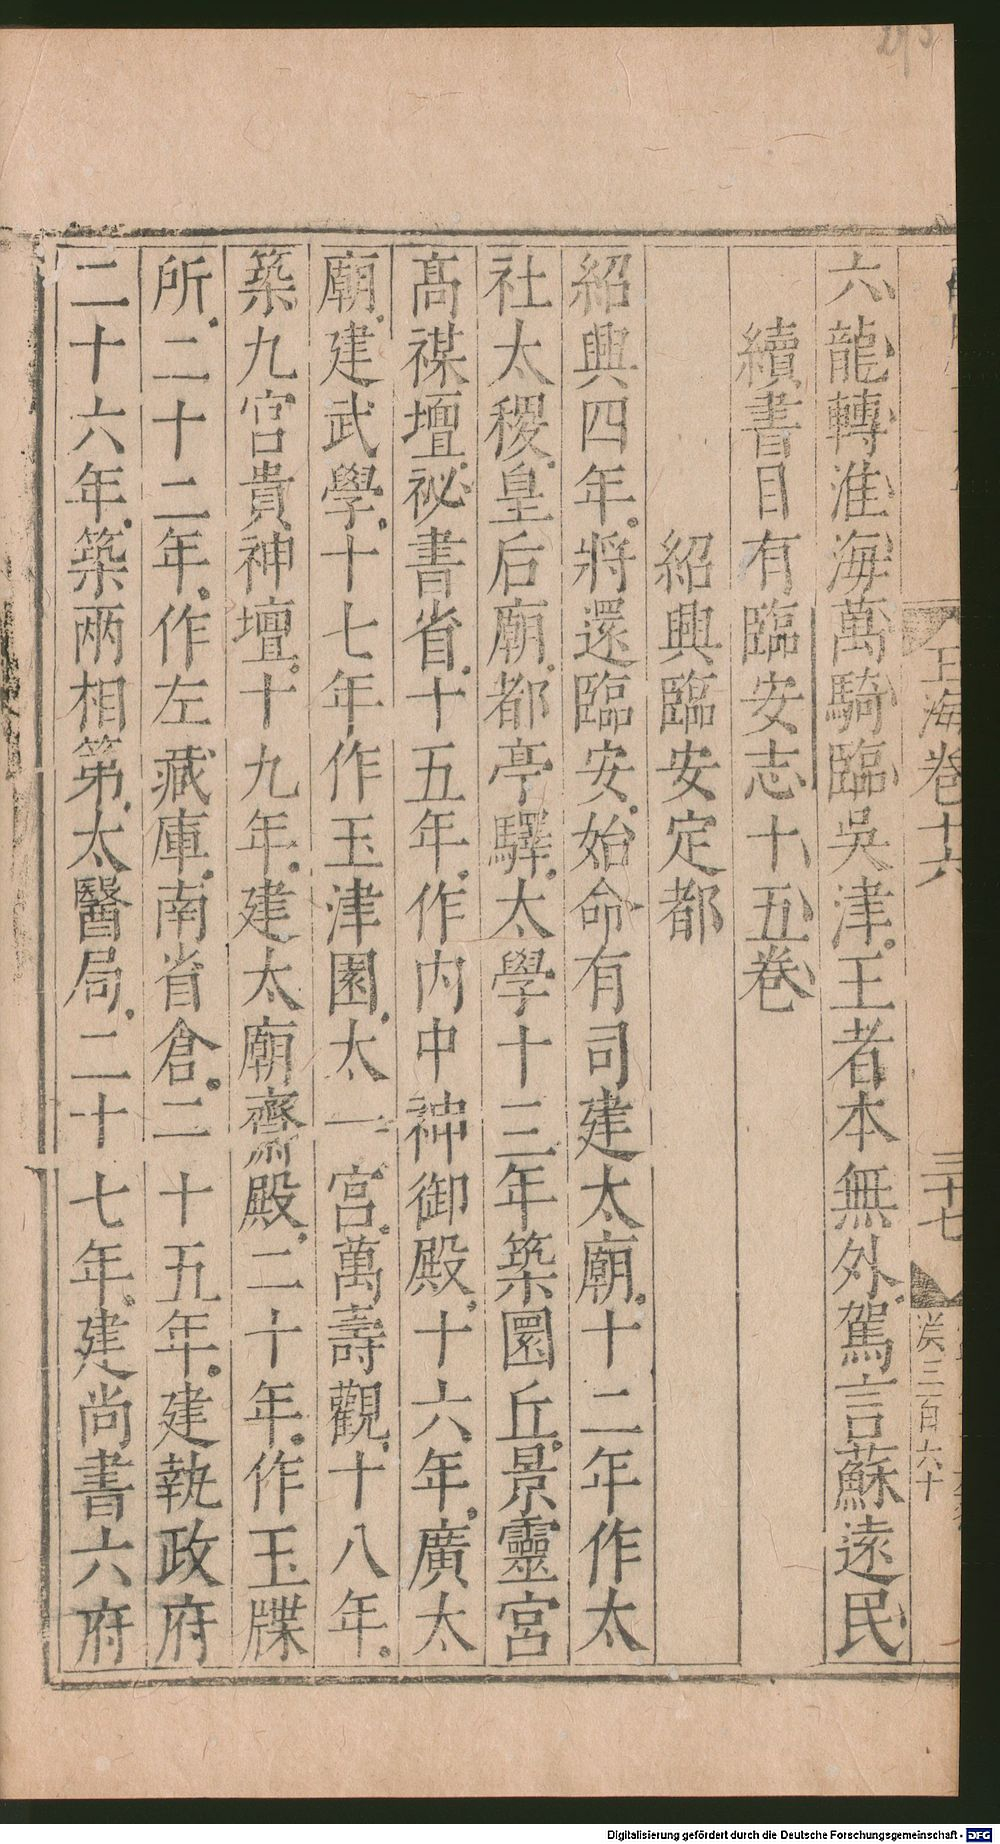 玉海卷十六
三十七
六龍轉淮海萬騎臨吳津王者本無外駕言蘇遠民
續書目有臨安志十五卷
紹興臨安定都
紹興四年將還臨安始命有司建太廟十二年作太
社太稷皇后廟都亭驛太學十三年築圜丘景靈宮
高禖壇祕書省十五年作内中神御殿十六年廣太
廟建武學十七年作玉津園太一宮萬壽觀十八年
築九宮貴神壇十九年建太廟齋殿二十年作玉牒
所二十二年作左藏庫南省倉二十五年建執政府
二十六年築兩相第太醫局二十七年建尚書六府
Digitalisierung gefördert durch die Deutsche Forschungsgemeinschaft - DFG